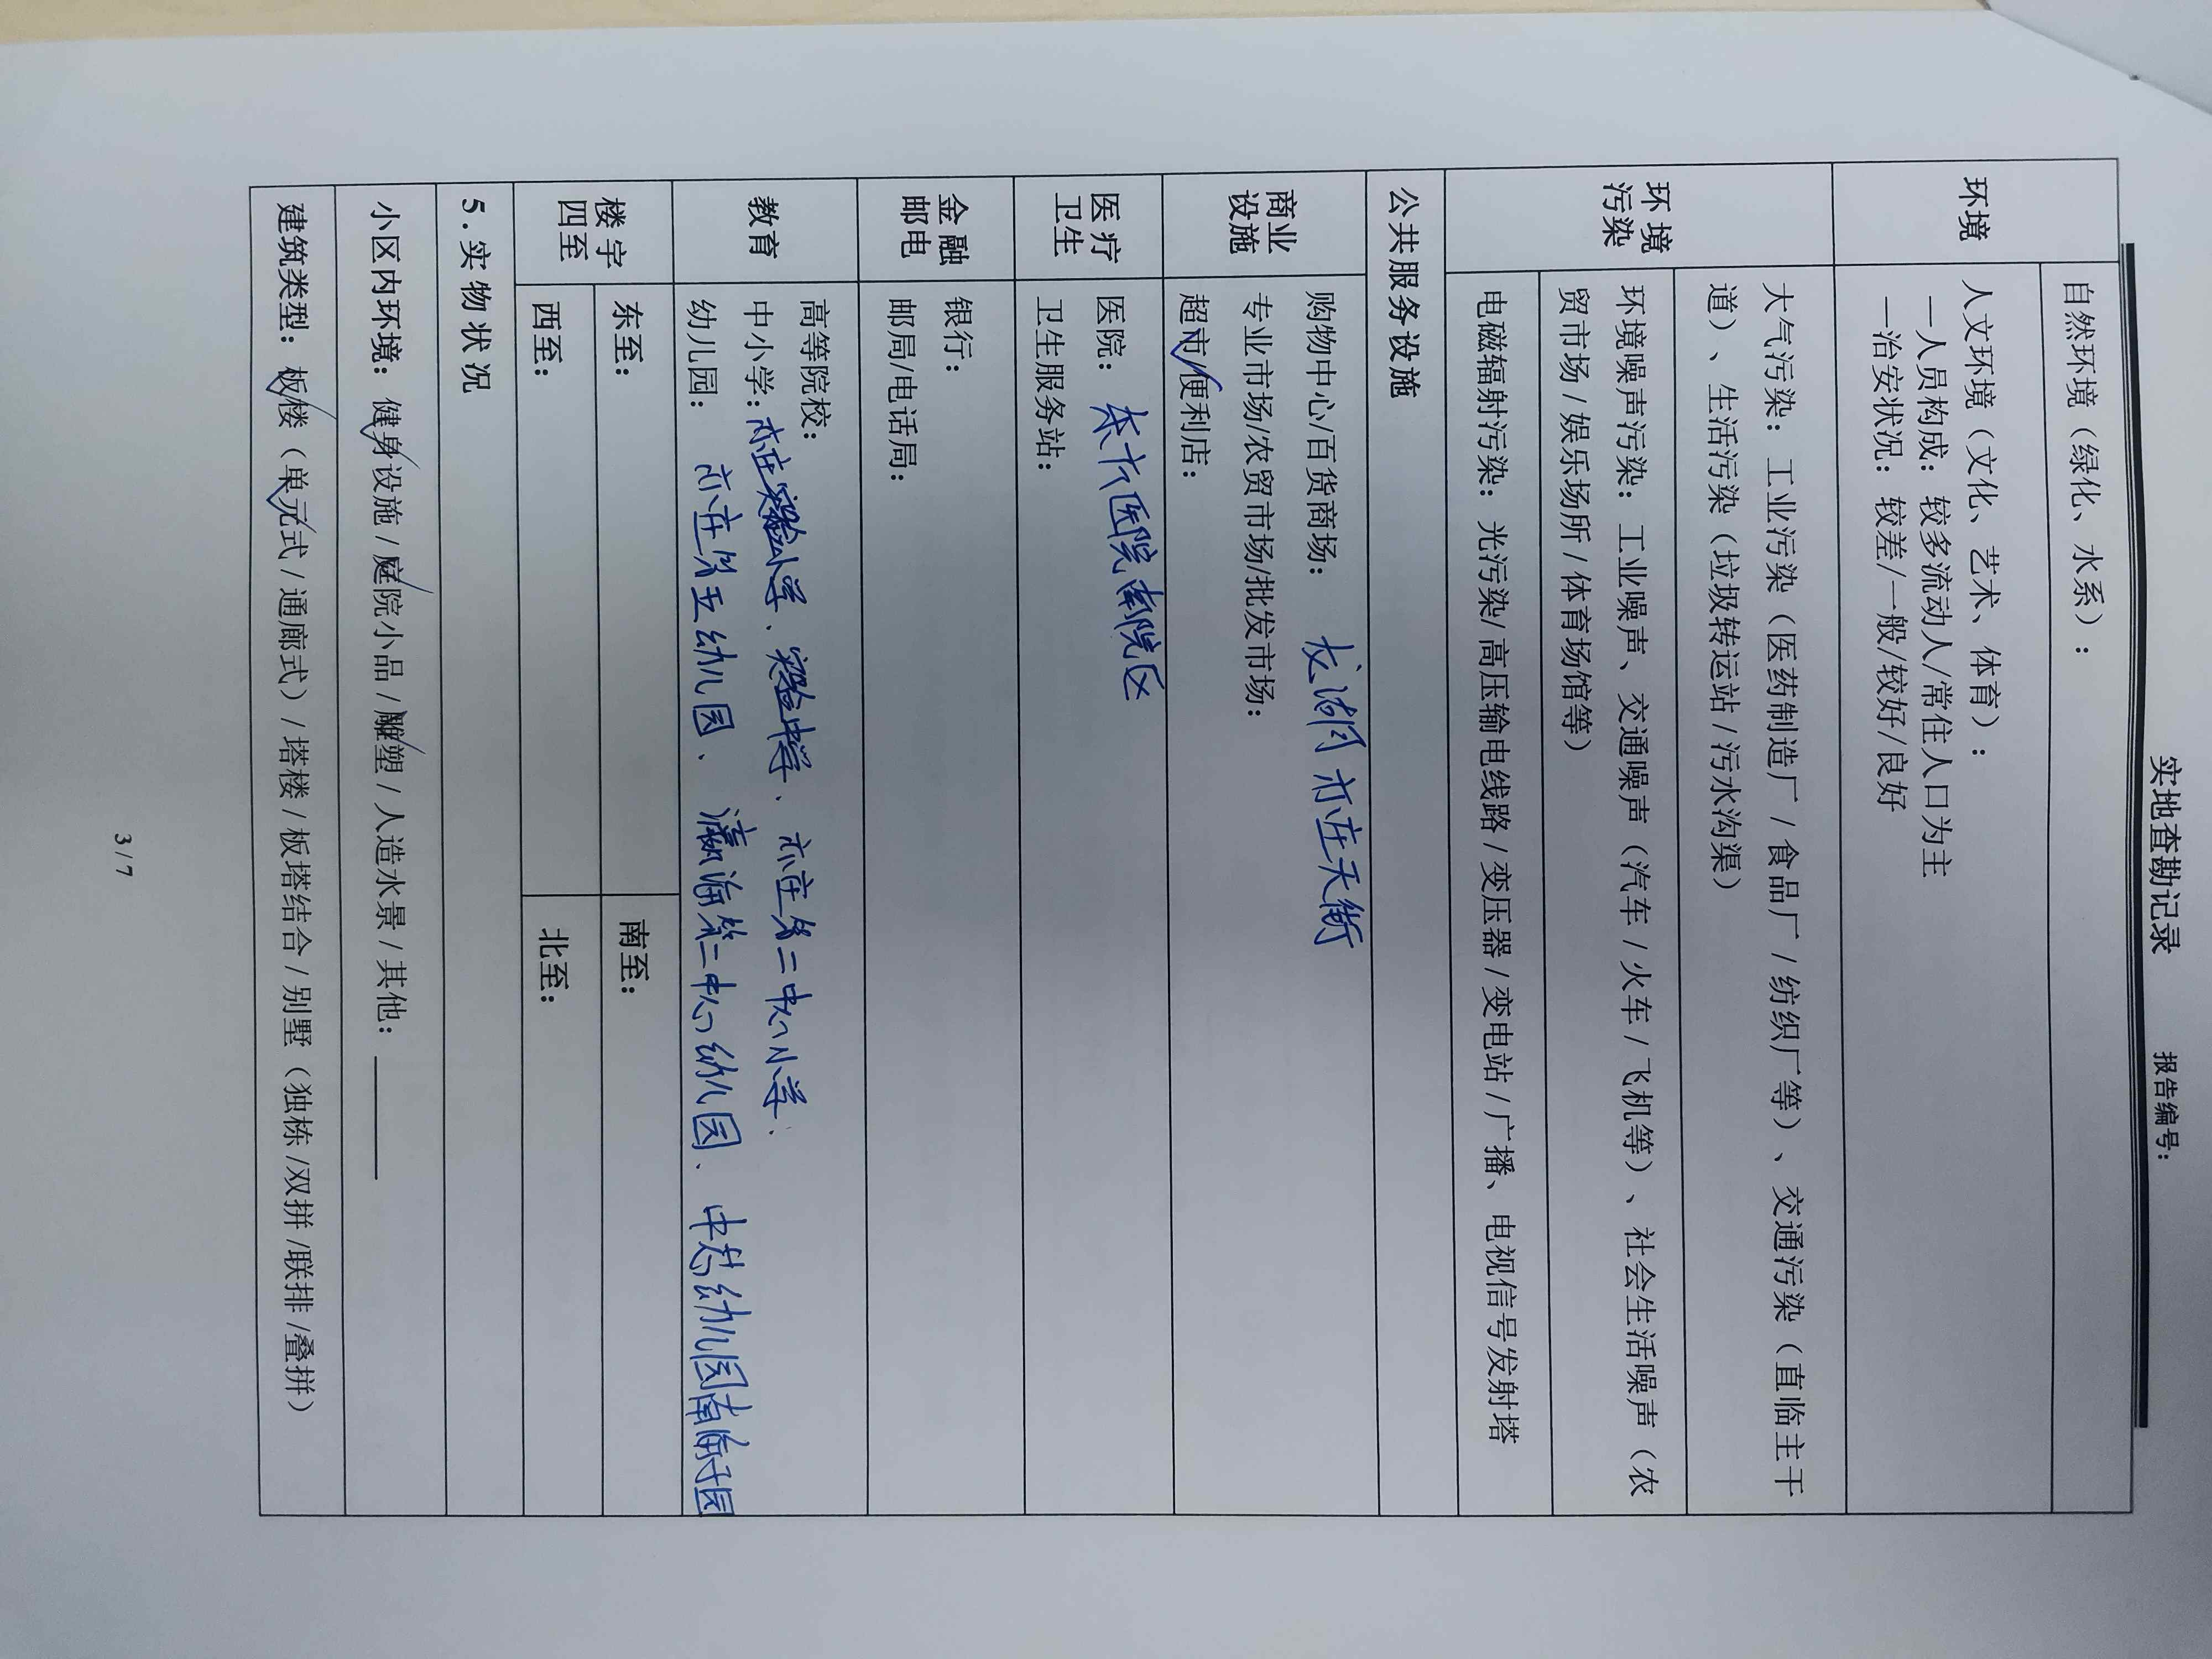 实地查勘记录 报告编号：
环境
自然环境（绿化、水系）：
人文环境（文化、艺术、体育）：
—人员构成：较多流动人/常住人口为主
—治安状况：较差/一般/较好/良好
环境
污染
大气污染：工业污染（医药制造厂/食品厂/纺织厂等）、交通污染（直临主干
道）、生活污染（垃圾转运站/污水沟渠）
环境噪声污染：工业噪声、交通噪声（汽车/火车/飞机等）、社会生活噪声（农
贸市场/娱乐场所/体育场馆等）
电磁辐射污染：光污染/高压输电线路/变压器/变电站/广播、电视信号发射塔
公共服务设施
商业
设施
购物中心/百货商场：龙湖亦庄天街
专业市场/农贸市场/批发市场：
超市/便利店：
医疗
卫生
医院：医院南院区
卫生服务站：
金融
邮电
银行：
邮局/电话局：
教育
高等院校：
中小学：亦庄实验小学、实验中学、亦庄第二中心小学、
幼儿园：亦庄第五幼儿园、瀛海第二中心幼儿园、中幼儿园南园
楼宇
四至
东至： 南至：
西至： 北至：
5.实物状况
小区内环境：健身设施/庭院小品/雕塑/人造水景/其他：
建筑类型：板楼（单元式/通廊式）/塔楼/板塔结合/别墅（独栋/双拼/联排/叠拼）
3/7